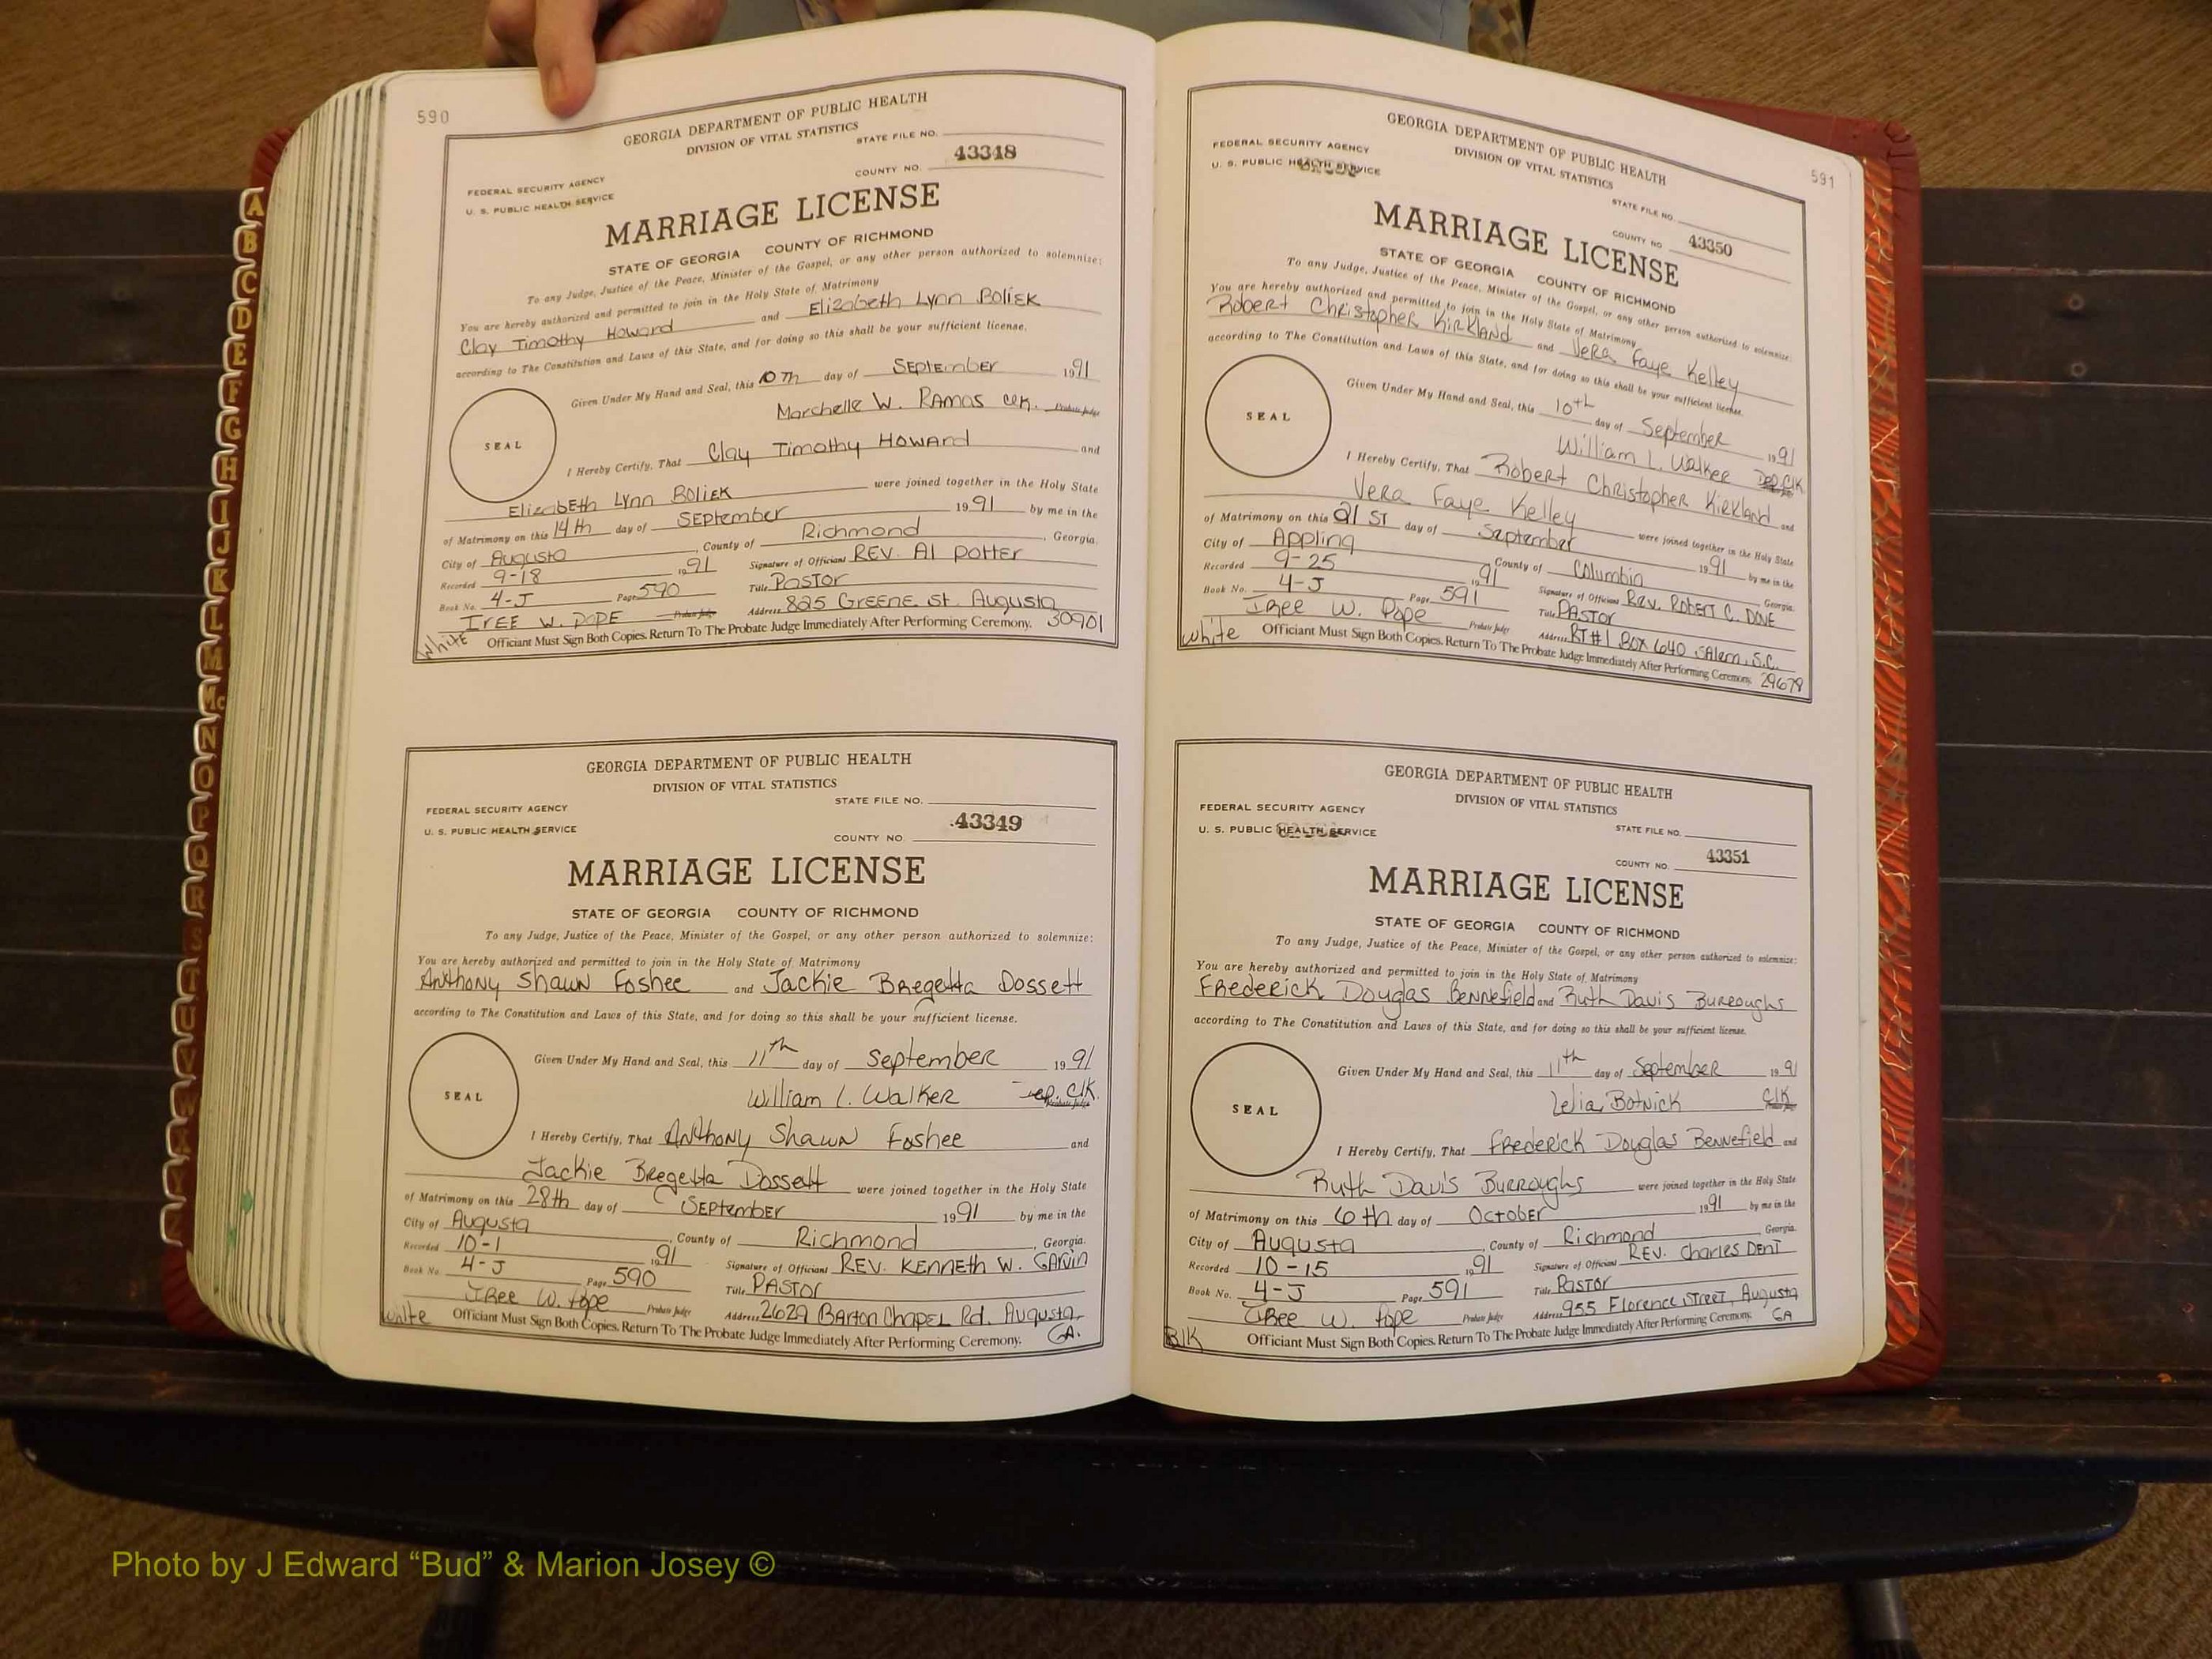 590
GEORGIA DEPARTMENT OF PUBLIC HEALTH
DIVISION OF VITAL STATISTICS
STATE FILE NO.
43348
COUNTY NO.
FEDERAL SECURITY AGENCY
U. S. PUBLIC HEALTH SERVICE
MARRIAGE LICENSE
STATE OF GEORGIA COUNTY OF RICHMOND
To any Judge, Justice of the Peace, Minister of the Gospel, or any other person authorized to solemnize:
You are hereby authorized and permitted to join in the Holy State of Matrimony
Clay Timothy Howard and Elizabeth Lynn Boliek
according to The Constitution and Laws of this State, and for doing so this shall be your sufficient license.
SEAL
Given Under My Hand and Seal, this 10th day of September 1991
Marchelle W. Ramos Clk. Probate Judge
I Hereby Certify, That Clay Timothy Howard and
Elizabeth Lynn Boliek were joined together in the Holy State
of Matrimony on this 14th day of September 1991 by me in the
City of Augusta, County of Richmond, Georgia.
Recorded 9-18 1991 Signature of Officiant REV. Al Potter
Book No. 4-J Page 590 Title Pastor
IREE W. POPE Probate Judge Address 825 Greene St. Augusta
White Officiant Must Sign Both Copies. Return To The Probate Judge Immediately After Performing Ceremony. 30901
GEORGIA DEPARTMENT OF PUBLIC HEALTH
DIVISION OF VITAL STATISTICS
STATE FILE NO.
FEDERAL SECURITY AGENCY
U. S. PUBLIC HEALTH SERVICE
.43349
COUNTY NO.
MARRIAGE LICENSE
STATE OF GEORGIA COUNTY OF RICHMOND
To any Judge, Justice of the Peace, Minister of the Gospel, or any other person authorized to solemnize:
You are hereby authorized and permitted to join in the Holy State of Matrimony
Anthony Shawn Foshee and Jackie Bregetta Dossett
according to The Constitution and Laws of this State, and for doing so this shall be your sufficient license.
SEAL
Given Under My Hand and Seal, this 11th day of September 1991
William L. Walker Dep. Clk. Probate Judge
I Hereby Certify, That Anthony Shawn Foshee and
Jackie Bregetta Dossett were joined together in the Holy State
of Matrimony on this 28th day of September 1991 by me in the
City of Augusta, County of Richmond, Georgia.
Recorded 10-1 1991 Signature of Officiant REV. KENNETH W. GARVIN
Book No. 4-J Page 590 Title PASTOR
Iree W. Pope Probate Judge Address 2629 Barton Chapel Rd. Augusta,
White Officiant Must Sign Both Copies. Return To The Probate Judge Immediately After Performing Ceremony. GA.
591
GEORGIA DEPARTMENT OF PUBLIC HEALTH
DIVISION OF VITAL STATISTICS
FEDERAL SECURITY AGENCY
U. S. PUBLIC HEALTH SERVICE
STATE FILE NO.
COUNTY NO. 43350
MARRIAGE LICENSE
STATE OF GEORGIA COUNTY OF RICHMOND
To any Judge, Justice of the Peace, Minister of the Gospel, or any other person authorized to solemnize:
You are hereby authorized and permitted to join in the Holy State of Matrimony
Robert Christopher Kirkland and Vera Faye Kelley
according to The Constitution and Laws of this State, and for doing so this shall be your sufficient license.
SEAL
Given Under My Hand and Seal, this 10th day of September 1991
William L. Walker Dep Clk
I Hereby Certify, That Robert Christopher Kirkland and
Vera Faye Kelley were joined together in the Holy State
of Matrimony on this 21st day of September 1991 by me in the
City of Appling County of Columbia Georgia.
Recorded 9-25 1991 Signature of Officiant Rev. Robert C. Dove
Book No. 4-J Page 591 Title PASTOR
Iree W. Pope Probate Judge Address RT#1 Box 640 Salem, S.C.
White Officiant Must Sign Both Copies. Return To The Probate Judge Immediately After Performing Ceremony. 29679
GEORGIA DEPARTMENT OF PUBLIC HEALTH
DIVISION OF VITAL STATISTICS
FEDERAL SECURITY AGENCY
U. S. PUBLIC HEALTH SERVICE
STATE FILE NO.
COUNTY NO. 43351
MARRIAGE LICENSE
STATE OF GEORGIA COUNTY OF RICHMOND
To any Judge, Justice of the Peace, Minister of the Gospel, or any other person authorized to solemnize:
You are hereby authorized and permitted to join in the Holy State of Matrimony
Frederick Douglas Bennefield and Ruth Davis Burroughs
according to The Constitution and Laws of this State, and for doing so this shall be your sufficient license.
SEAL
Given Under My Hand and Seal, this 11th day of September 1991
Lelia Botnick Clk
I Hereby Certify, That Frederick Douglas Bennefield and
Ruth Davis Burroughs were joined together in the Holy State
of Matrimony on this 6th day of October 1991 by me in the
City of Augusta, County of Richmond Georgia.
Recorded 10-15 1991 Signature of Officiant REV. Charles Dent
Book No. 4-J Page 591 Title Pastor
Iree W. Pope Probate Judge Address 955 Florence Street, Augusta
Blk Officiant Must Sign Both Copies. Return To The Probate Judge Immediately After Performing Ceremony. GA
A
B
C
D
E
F
G
H
I
J
K
L
M
Mc
N
O
P
Q
R
S
T
U
V
W
X
Y
Z
Photo by J Edward “Bud” & Marion Josey ©